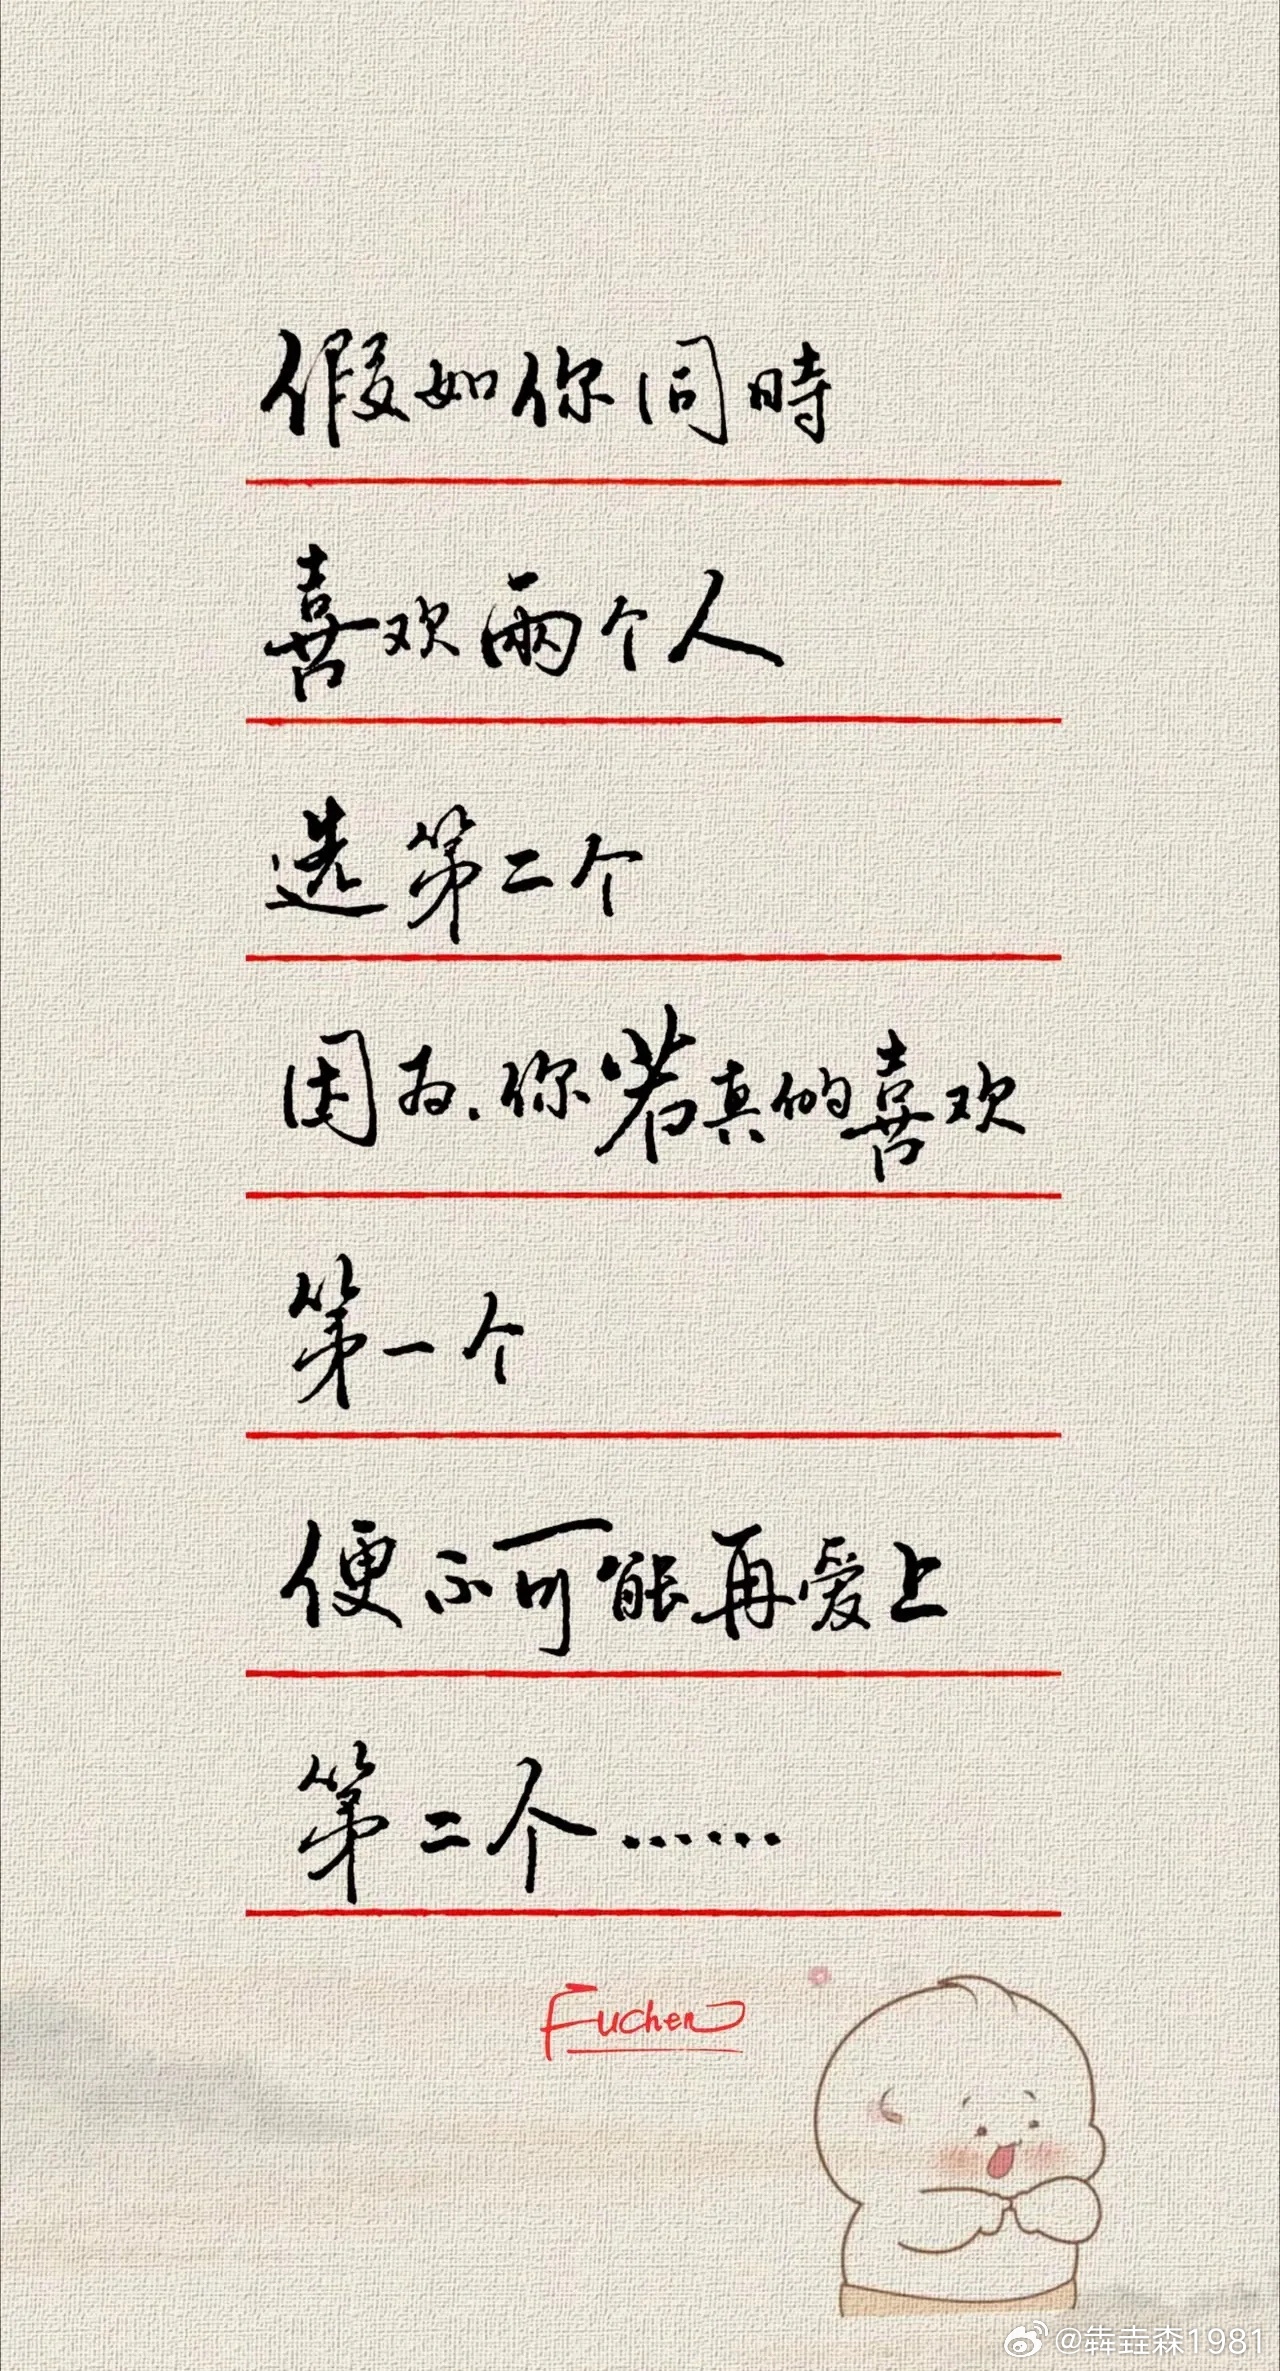 假如你同時
喜欢兩个人
选第二个
因为.你若真的喜欢
第一个
便不可能再爱上
第二个……
Fuchen
@犇垚森1981